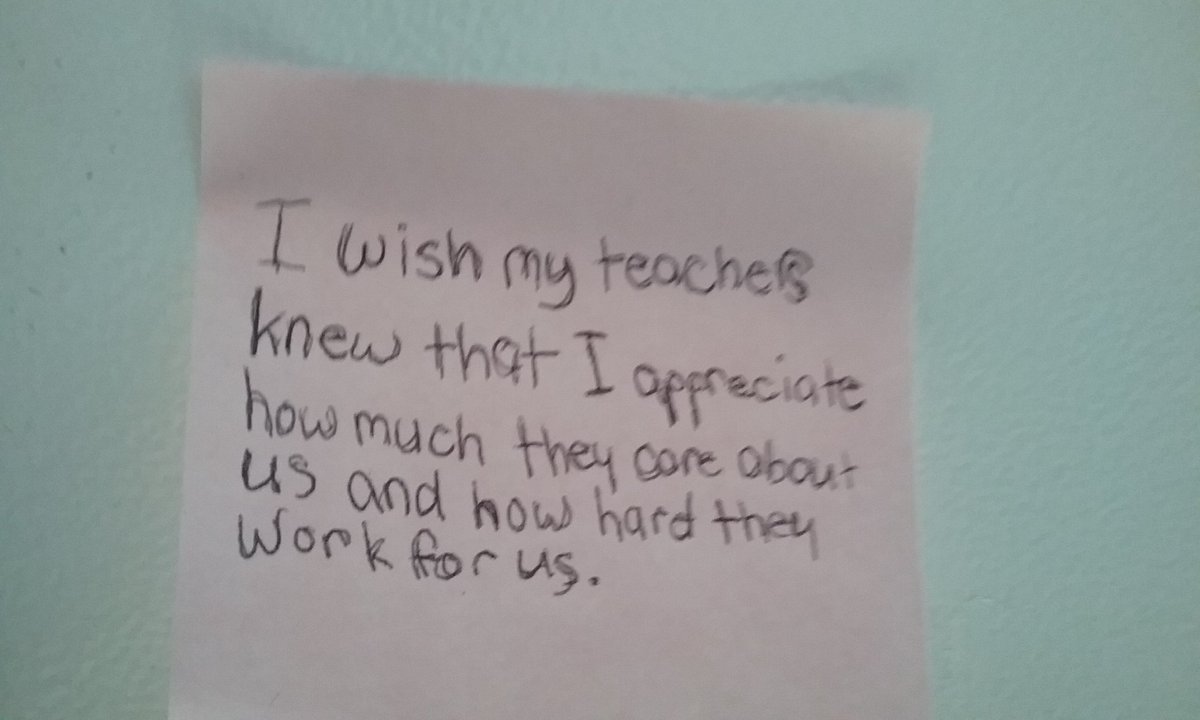 I wish my teachers
knew that I appreciate
how much they care about
us and how hard they
work for us.